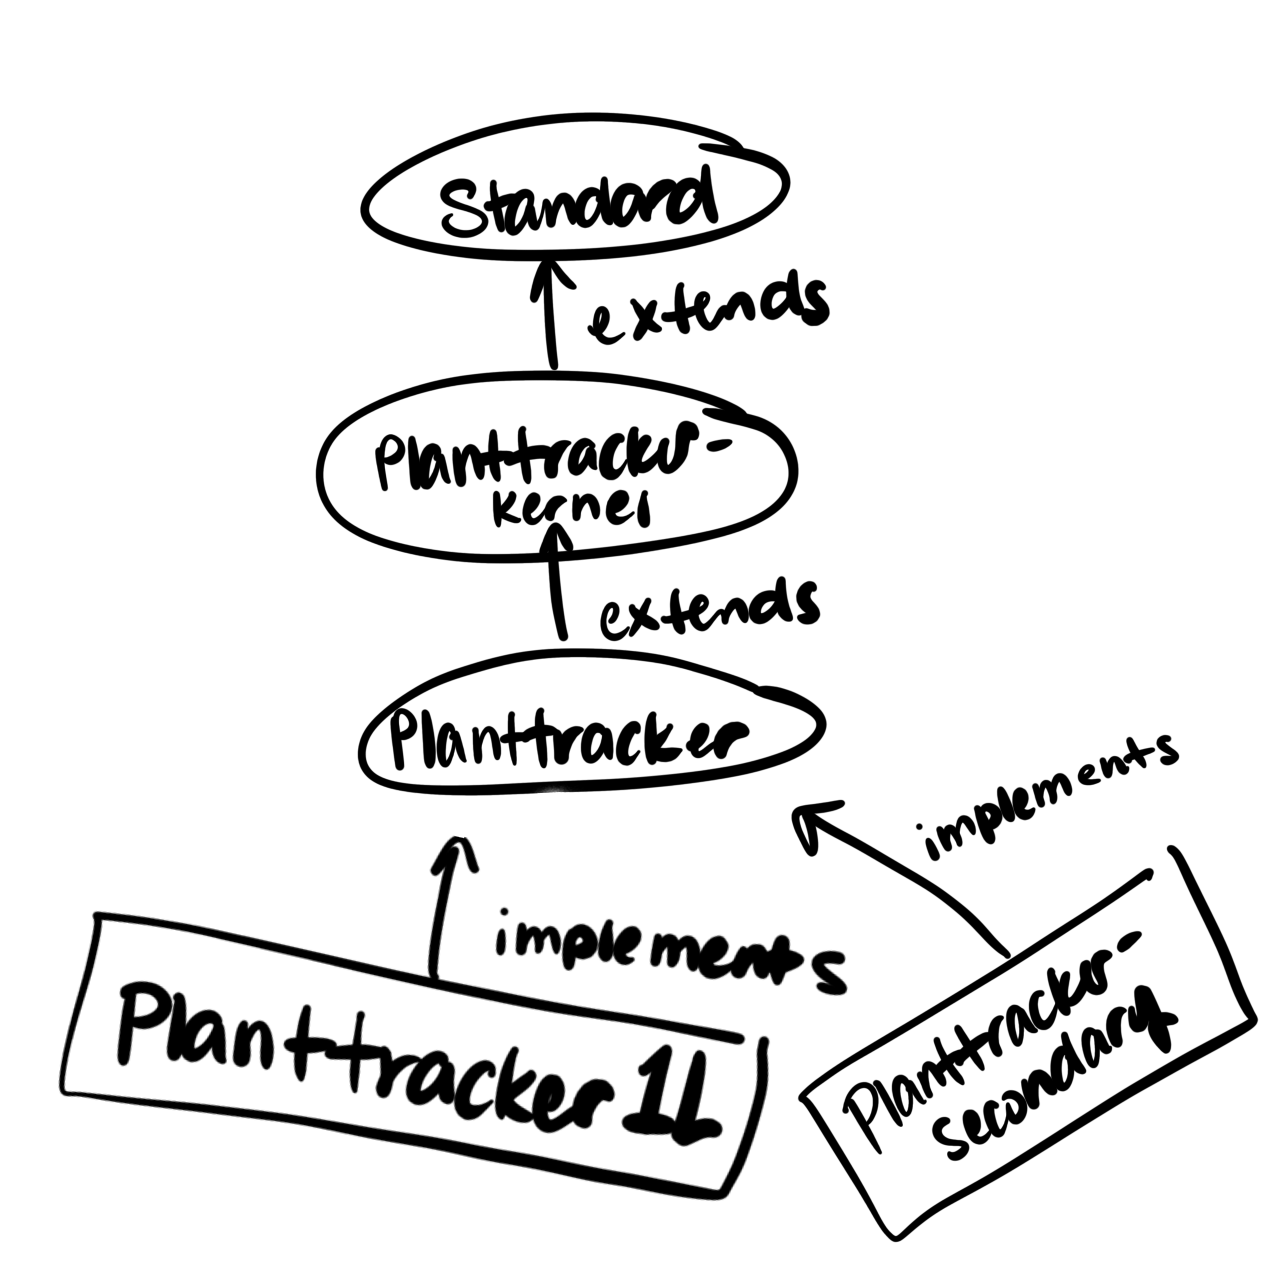 Standard
extends
Planttracker-
kernel
extends
Planttracker
implements
implements
Planttracker 1L
Planttracker-
secondary